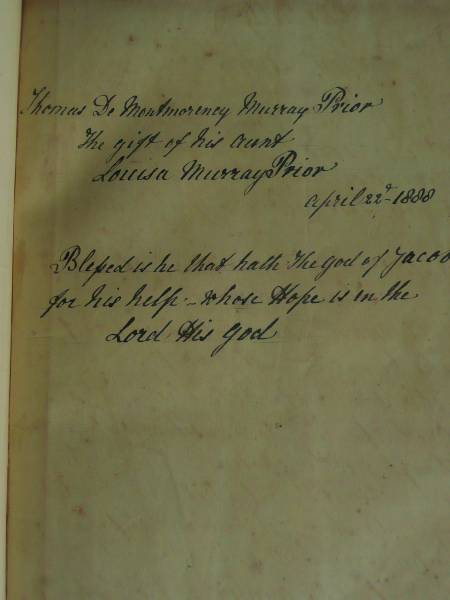 Thomas De Montmorency Murray Prior
The gift of his Aunt
Louisa Murray Prior
April 22d - 1888
Blessed is he that hath The God of Jacob
for his help - whose Hope is in the
Lord His God